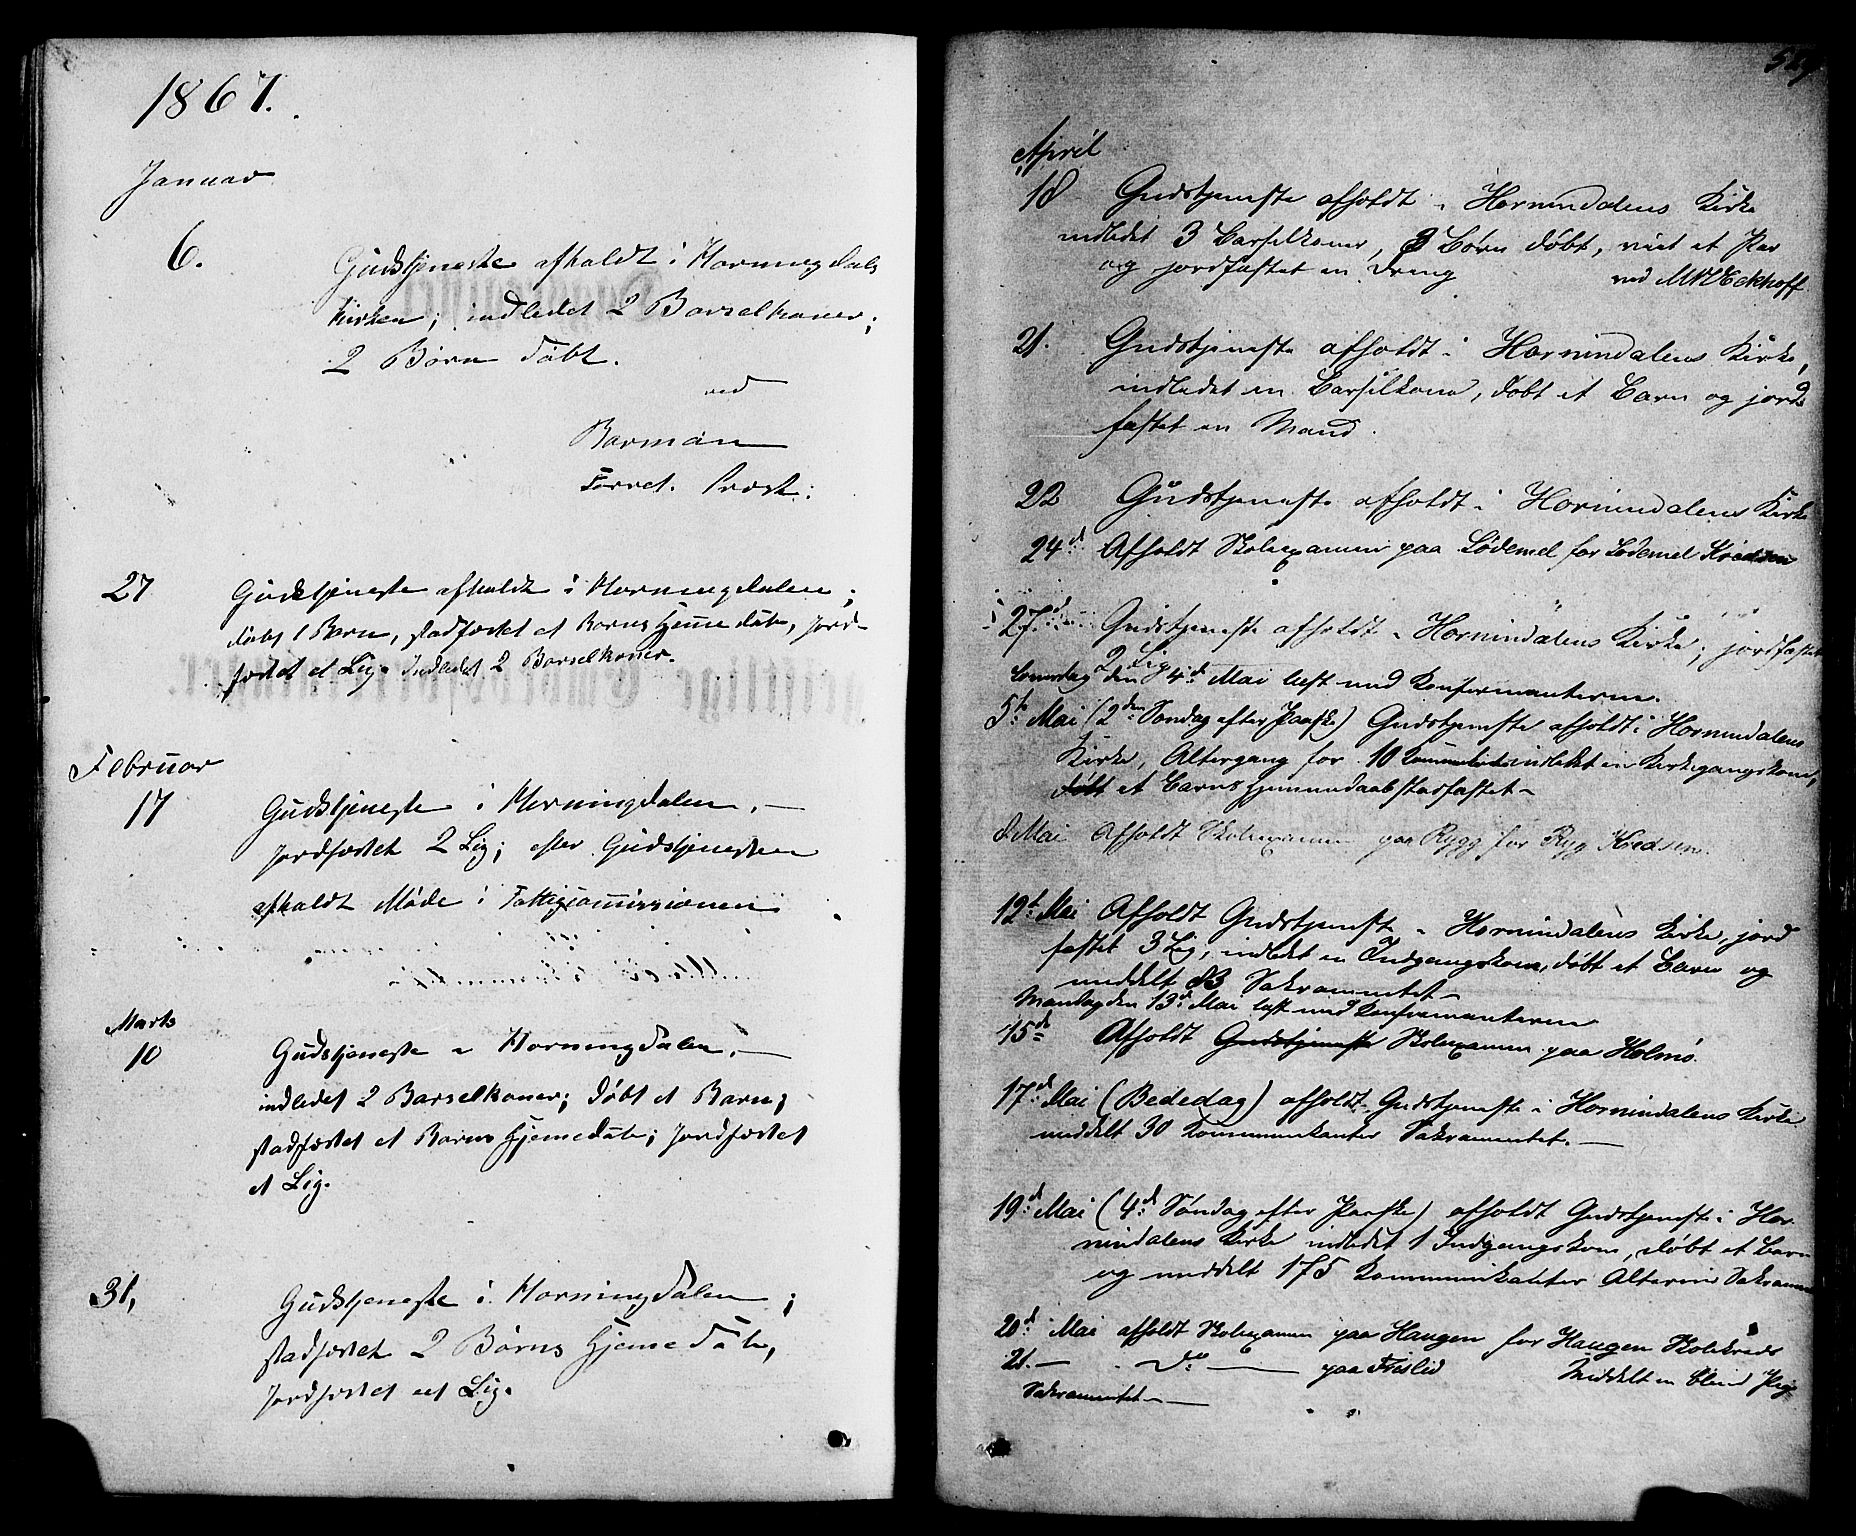 1867.
Januar
6.
Gudstjeneste afholdt i Horningdals
Kirken; indledet 2 Barselkoner;
2 Børn døbt.
ved
Barman
Forret. Præst.
27
Gudstjeneste afholdt i Horningdalen;
døbt 1 Barn, stadfæstet et Barns Hjemmedåb, Jord-
fæstet et Lig. Indledet 2 Barselkoner.
Februar
17
Gudstjeneste i Horningdalen.—
Jordfæstet 2 Lig; efter Gudstjenesten
afholdt Møde i Fattigcommissionen
Marts
10
Gudstjeneste i Horningdalen.—
indledet 2 Barselkoner; døbt et Barn;
stadfæstet et Barns Hjemedåb; Jordfæstet
et Lig.
31,
Gudstjeneste i Horningdalen;
stadfæstet 2 Børns Hjemedåb,
Jordfæstet eet Lig.
April
18 Gudstjeneste afholdt i Hornindalens Kirke
indledet 3 Barselkoner, 3 Børn døbt, viet et Par
og jordfæstet en Dreng ved Eckhoff
21. Gudstjeneste afholdt i Hornindalens Kirke,
indledet en Barselkone, døbt et Barn og jord
fæstet en Mand.
22 Gudstjeneste afholdt i Hornindalens Kirke
24d: Afholdt Skolexamen paa Lødemel for Lødemel Kredsen
27d: Gudstjeneste afholdt i Hornindalens Kirke; jordfæstet
2 Lig
den 4d: Mai læst med Konfirmanterne.
5t: Mai (2den Søndag efter Paaske) Gudstjeneste afholdt i Hornindalens
Kirke, Altergang for 10 indledet en Kirkegangskone,
døbt et Barns Hjemmedaab stadfæstet—
8 Mai Afholdt Skolexamen paa Rygg for Ryg Kredsen.
12t: Mai Afholdt Gudstjeneste i Hornindalens Kirke, jord
fæstet 3 Lig, indledet en Indgangskone, døbt et Barn og
meddelt 83 Sakramentet—
Mandag den 13d: Mai læst med Konfirmanterne
15d: Afholdt Gudstjeneste Skolexamen paa Holmø.
17d: Mai (Bededag) afholdt Gudstjeneste i Hornindalens Kirke
meddelt 30 Kommunikanter Sakramentet.—
19d: Mai (4d: Søndag efter Paaske) afholdt Gudstjeneste i Hor-
nindalens Kirke indledet 1 Indgangskone, døbt et Barn
og meddelt 175 Kommunikanter Alterens Sakrament
20d: Mai afholdt Skolexamen paa Haugen for Haugen Skolekreds
21.— Do — paa Meddelt en blind Pige
Sakramentet.—